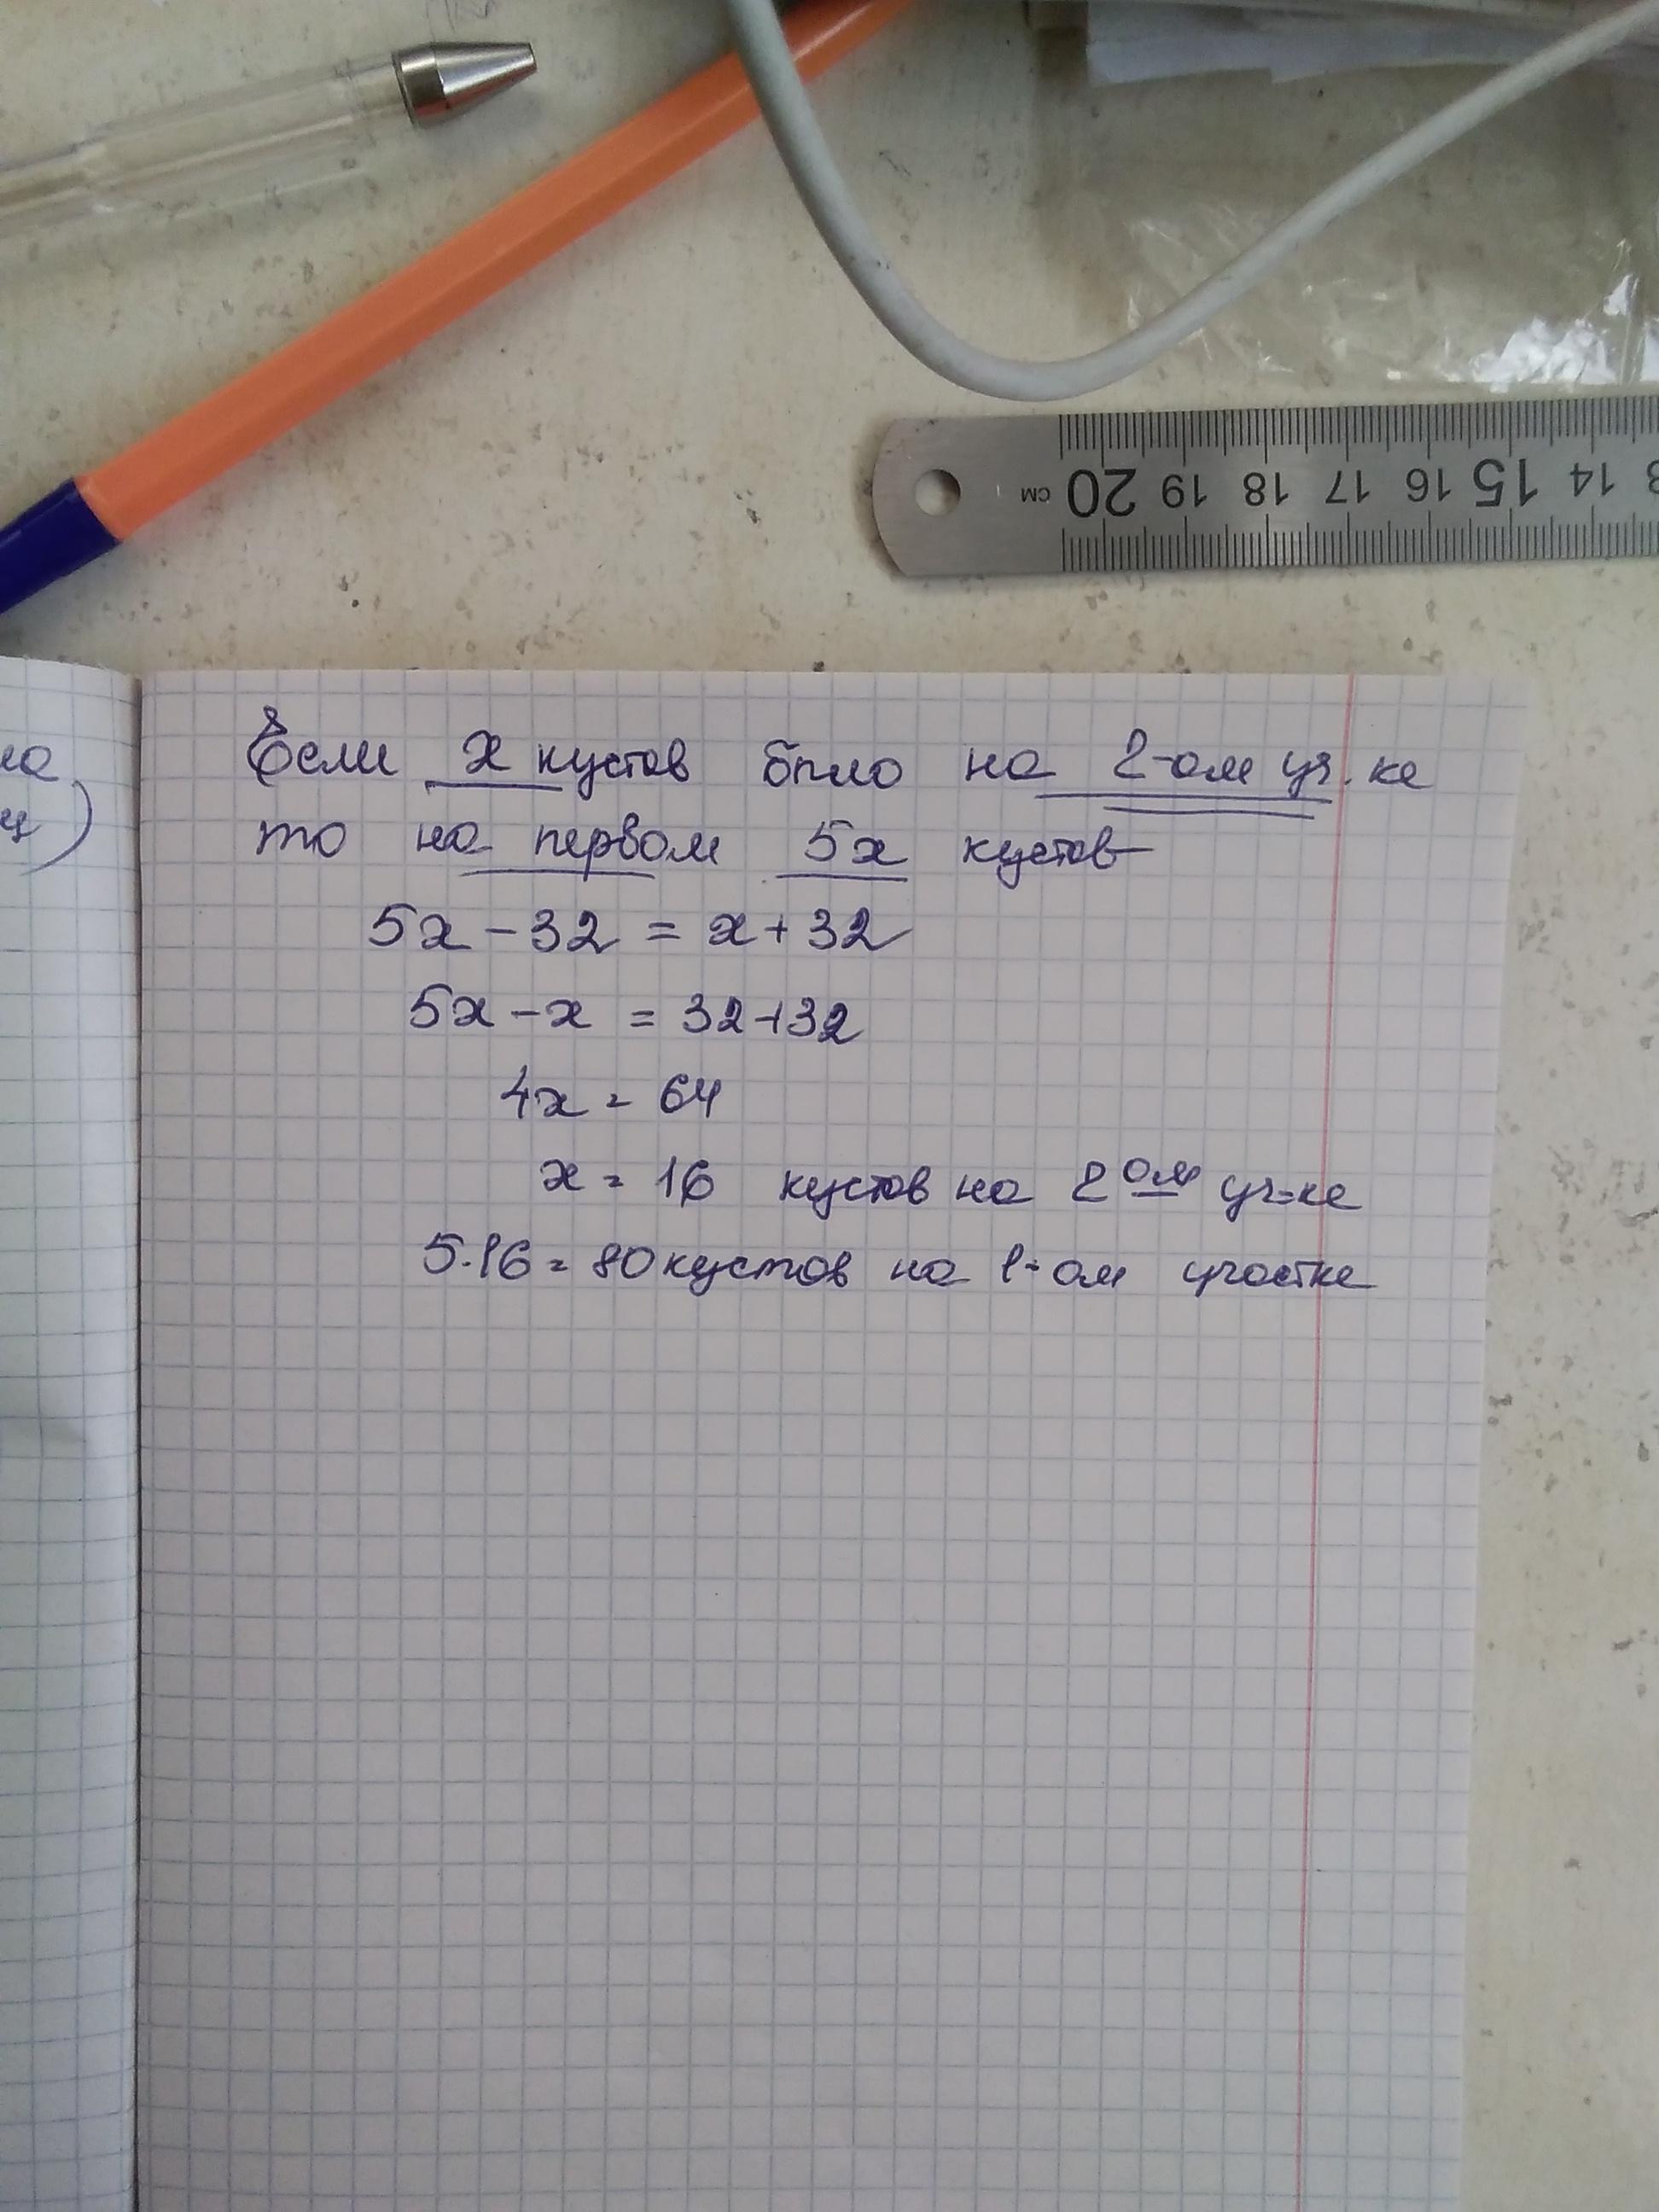 см 20 19 18 17 16 15 14
на
)
Если х кустов было на 2-ом уч.ке
то на первом 5х кустов
5х - 32 = х + 32
5х - х = 32 + 32
4х = 64
х = 16 кустов на 2ом уч-ке
5.16 = 80 кустов на 1-ом участке